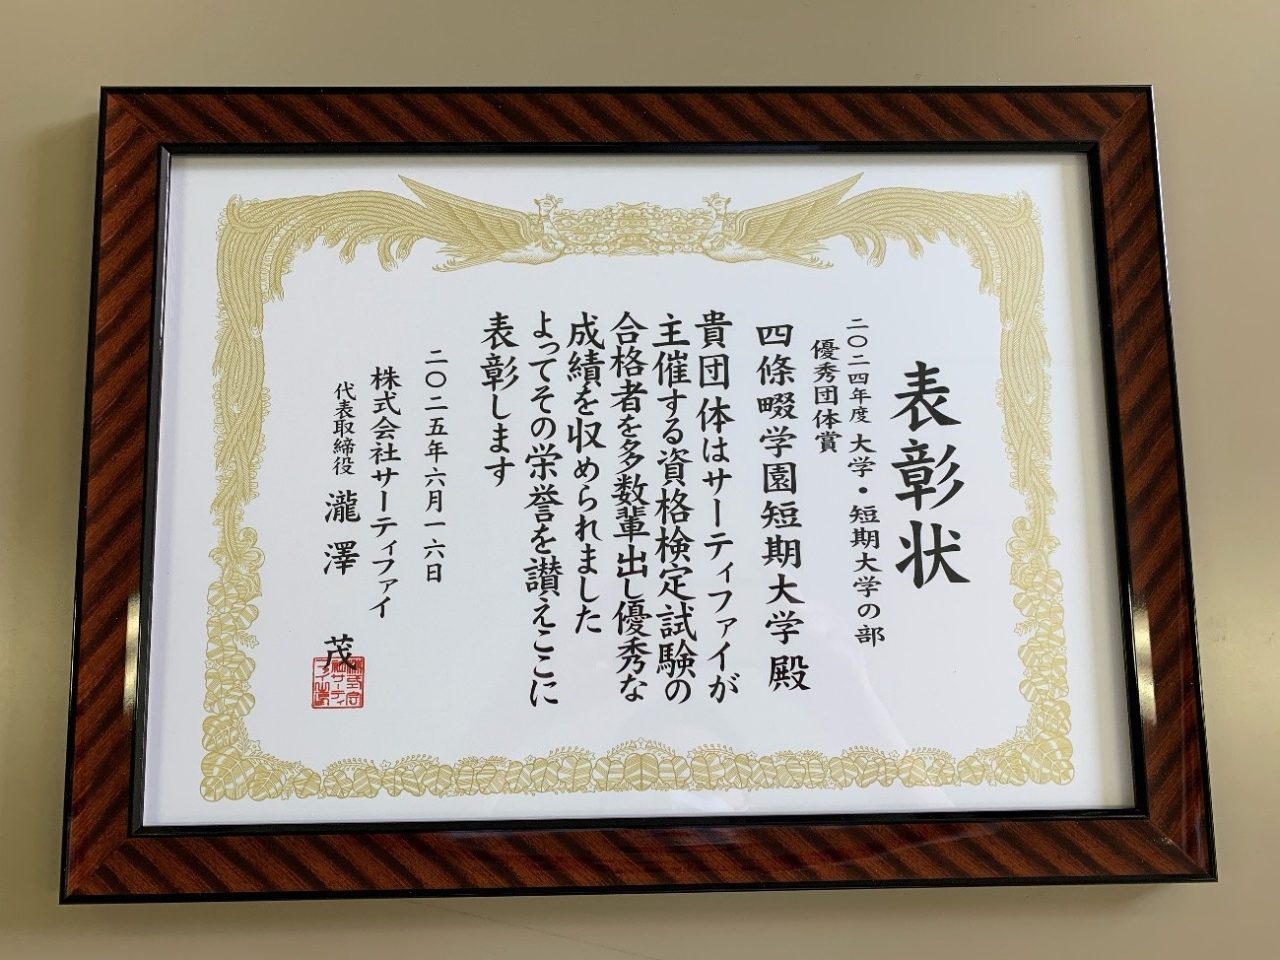 表彰状
二〇二四年度 大学・短期大学の部
優秀団体賞
四條畷学園短期大学 殿
貴団体はサーティファイが
主催する資格検定試験の
合格者を多数輩出し優秀な
成績を収められました
よってその栄誉を讃えここに
表彰します
二〇二五年六月一六日
株式会社サーティファイ
代表取締役 瀧澤 茂